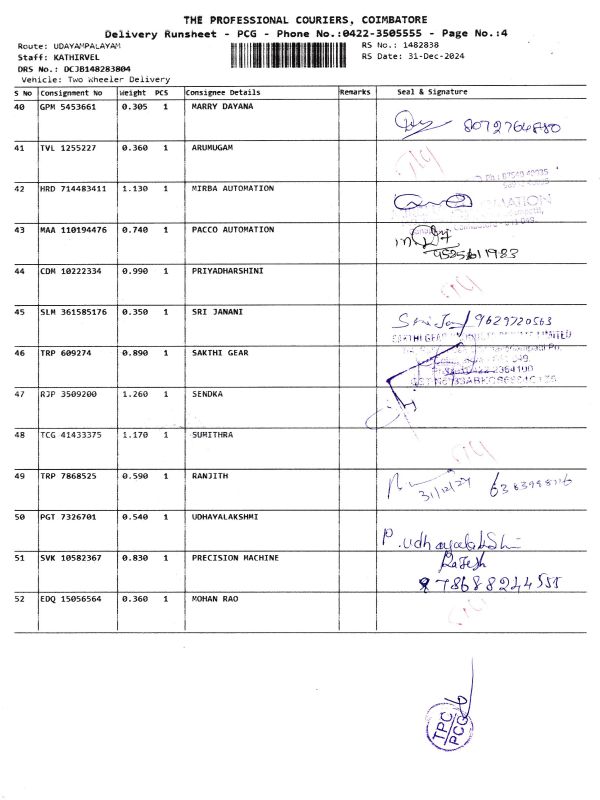 THE PROFESSIONAL COURIERS, COIMBATORE
Delivery Runsheet - PCG - Phone No.:0422-3505555 - Page No.:4
Route: UDAYAMPALAYAM RS No.: 1482838
Staff: KATHIRVEL RS Date: 31-Dec-2024
DRS No.: DCJB148283804
Vehicle: Two Wheeler Delivery
S No Consignment No Weight PCS Consignee Details Remarks Seal & Signature
40 GPM 5453661 0.305 1 MARRY DAYANA
8072764880
41 TVL 1255227 0.360 1 ARUMUGAM
42 HRD 714483411 1.130 1 MIRBA AUTOMATION
43 MAA 110194476 0.740 1 PACCO AUTOMATION
44 CDM 10222334 0.990 1 PRIYADHARSHINI
45 SLM 361585176 0.350 1 SRI JANANI
9629720563
SAKTHI GEAR LIMITED
46 TRP 609274 0.890 1 SAKTHI GEAR
47 RJP 3509200 1.260 1 SENDKA
48 TCG 41433375 1.170 1 SUMITHRA
49 TRP 7868525 0.590 1 RANJITH
31/12/24
50 PGT 7326701 0.540 1 UDHAYALAKSHMI
P.udhayalakshmi
51 SVK 10582367 0.830 1 PRECISION MACHINE
Rajesh
52 EDQ 15056564 0.360 1 MOHAN RAO
TPC
PCG